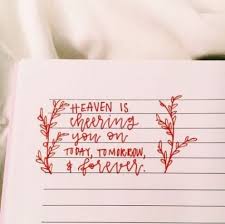 HEAVEN IS
cheering
you on
TODAY, TOMORROW,
& forever.